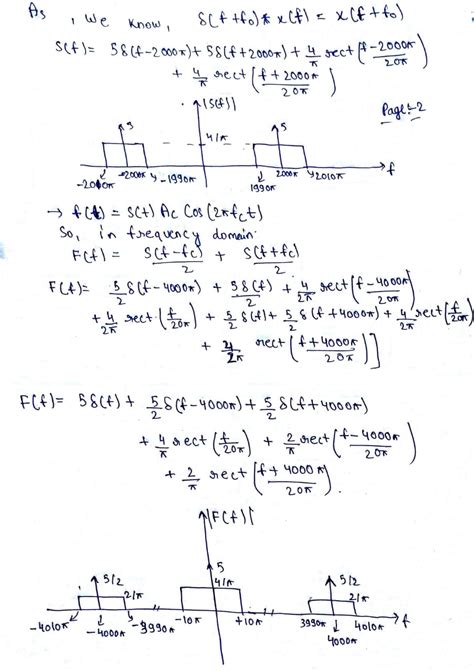 As, We know, δ(f+f₀)* x(f) = x(f+f₀)
S(f) = 5δ(f-2000π)+5δ(f+2000π)+ 4/π rect(f-2000π/20π)
+ 4/π rect(f+2000π/20π)
|S(f)|
Page:-2
5
4/π
5
f
-2010π -2000π -1990π
1990π 2000π 2010π
→ f(t) = s(t) Ac Cos(2πfct)
So, in frequency domain:
F(f) = S(f-fc)/2 + S(f+fc)/2
F(f) = 5/2 δ(f-4000π) + 5/2 δ(f) + 4/2π rect[f-4000π/20π]
+ 4/2π rect(f/20π) + 5/2 δ(f) + 5/2 δ(f+4000π) + 4/2π rect(f/20π)
+ 4/2π rect[f+4000π/20π]]
F(f) = 5δ(f) + 5/2 δ(f-4000π) + 5/2 δ(f+4000π)
+ 4/π rect(f/20π) + 2/π rect[f-4000π/20π]
+ 2/π rect[f+4000π/20π].
|F(f)|
5
4/π
5/2
2/π
5/2
2/π
-4010π -4000π -3990π -10π +10π 3990π 4000π 4010π f